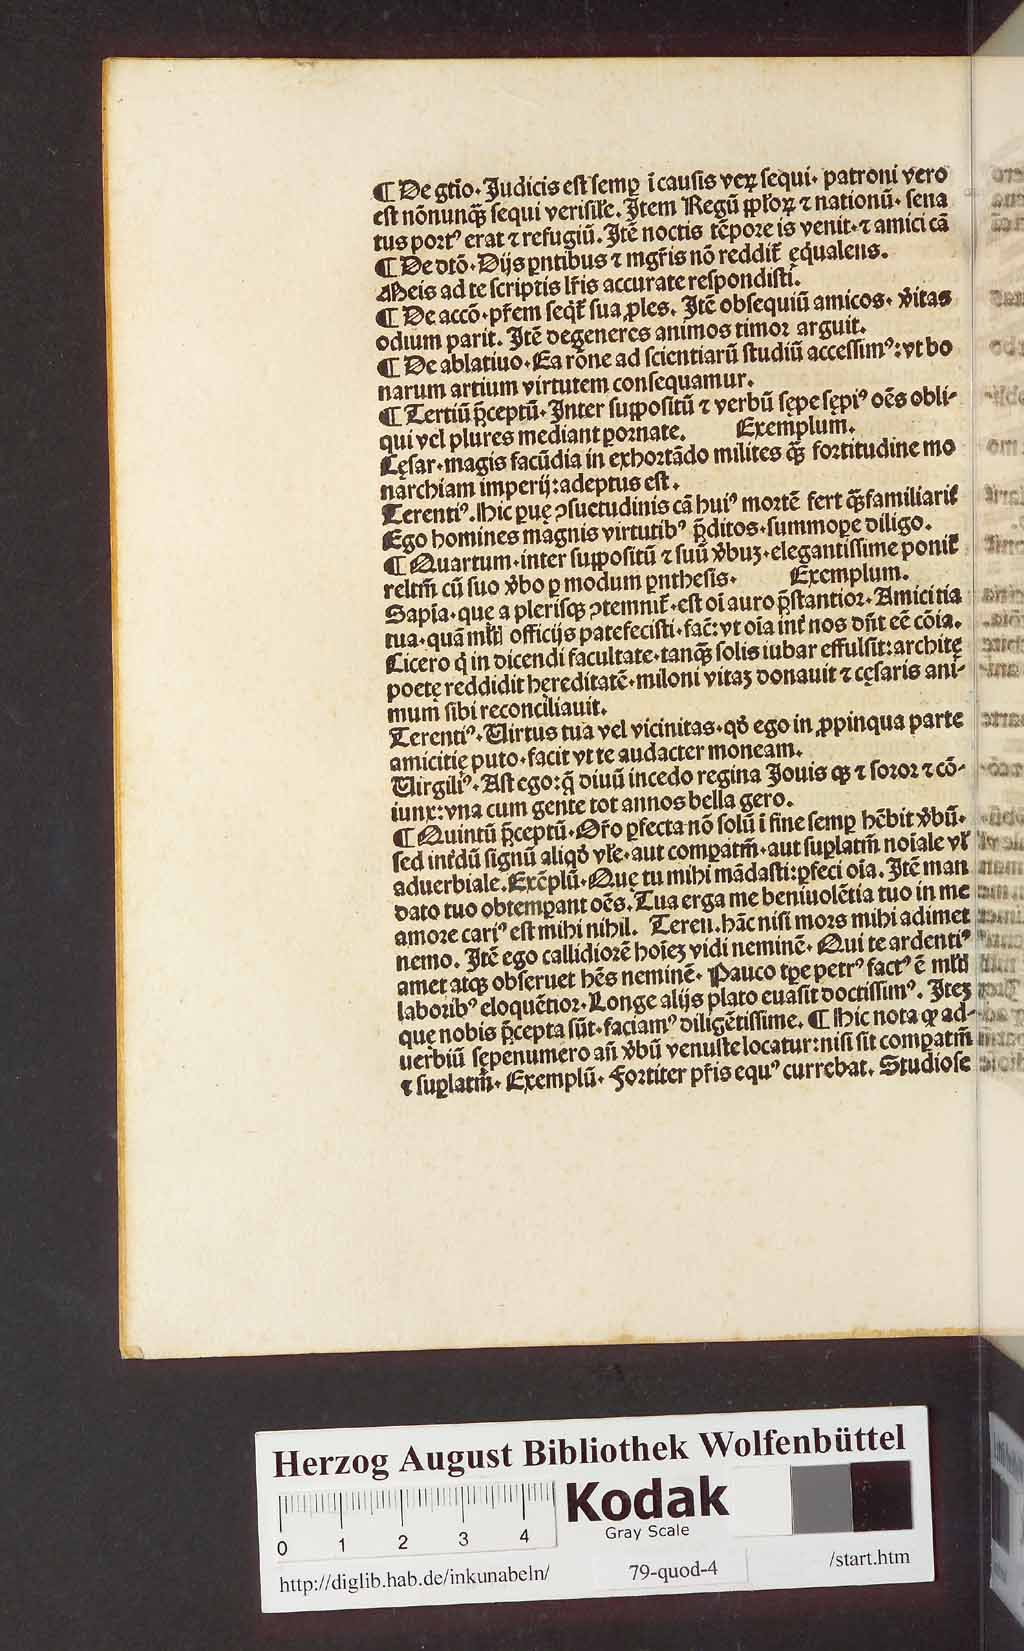 ¶ De gtīo. Judicis est semꝑ ī causis veꝝ sequi. patroni vero
est nōnunqꝫ sequi verisil̄e. Item Regū ꝓpl̄oꝝ ⁊ nationū. sena
tus portꝰ erat ⁊ refugiū. Itē noctis tēpore is venit. ⁊ amici cā
¶ De dtō. Dijs p̄ntibus ⁊ mgr̄is nō reddit̄ ęqualens.
Meis ad te scriptis lr̄is accurate respondisti.
¶ De accō. pr̄em seqt̄ sua ꝓles. Itē obsequiū amicos. v̄itas
odium parit. Itē degeneres animos timor arguit.
¶ De ablatiuo. Ea rōne ad scientiarū studiū accessimꝰ: vt bo
narum artium virtutem consequamur.
¶ Tertiū p̄ceptū. Inter suppositū ⁊ verbū sępe sępiꝰ oēs obli-
qui vel plures mediant ꝑornate. Exemplum.
Cęsar. magis facūdia in exhortādo milites qꝫ fortitudine mo
narchiam imperij: adeptus est.
Terentiꝰ. Hic ꝑuę ꝯsuetudinis cā huiꝰ mortē fert qꝫ familiarit̄
Ego homines magnis virtutibꝰ p̄ditos. summoꝑe diligo.
¶ Quartum. inter suppositū ⁊ suū v̄buꝫ. elegantissime ponit̄
reltm̄ cū suo v̄bo ꝑ modum p̄nthesis. Exemplum.
Sapīa. quę a plerisqꝫ ꝯtemnit̄. est oī auro p̄stantior. Amicitia
tua. quā ml̄tl officijs patefecisti. fac̄: vt oīa int̄ nos dn̄t eē cōia.
Cicero q̇ in dicendi facultate. tanqꝫ solis iubar effulsit: architę
poetę reddidit hęreditatē. miloni vitaꝫ donauit ⁊ cęsaris ani-
mum sibi reconciliauit.
Terentiꝰ. Uirtus tua vel vicinitas. qḋ ego in ꝓpinqua parte
amicitię puto. facit vt te audacter moneam.
Uirgiliꝰ. Ast ego: q̄ diuū incedo regina Jouis qꝫ ⁊ soror ⁊ cō-
iunx: vna cum gente tot annos bella gero.
¶ Quintū p̄ceptū. Or̄o ꝑfecta nō solū ī fine semꝑ hēbit v̄bū.
sed int̄dū signū aliqḋ vl̄e. aut comꝑatm̄. aut suꝑlatm̄ noīale vl̄
aduerbiale. Exēplū. Quę tu mihi mādasti: ꝑfeci oīa. Itē man
dato tuo obtemꝑant oēs. Tua erga me beniuolētia tuo in me
amore cariꝰ est mihi nihil. Teren. hāc nisi mors mihi adimet
nemo. Itē ego callidiorē hoīeꝫ vidi neminē. Qui te ardentiꝰ
amet atqꝫ obseruet hēs neminē. Pauco tꝑe petrꝰ factꝰ ē ml̄tl
laboribꝰ eloquētior. Longe alijs plato euasit doctissimꝰ. Iteꝫ
quę nobis p̄cepta sūt. faciamꝰ diligētissime. ¶ Hic nota ꝙ ad-
uerbiū sępenumero an̄ v̄bū venuste locatur: nisi sit comꝑatm̄
⁊ suꝑlatm̄. Exemplū. Fortiter pr̄is equꝰ currebat. Studiose
Herzog August Bibliothek Wolfenbüttel
0 1 2 3 4
Kodak
Gray Scale
http://diglib.hab.de/inkunabeln/ 79-quod-4 /start.htm